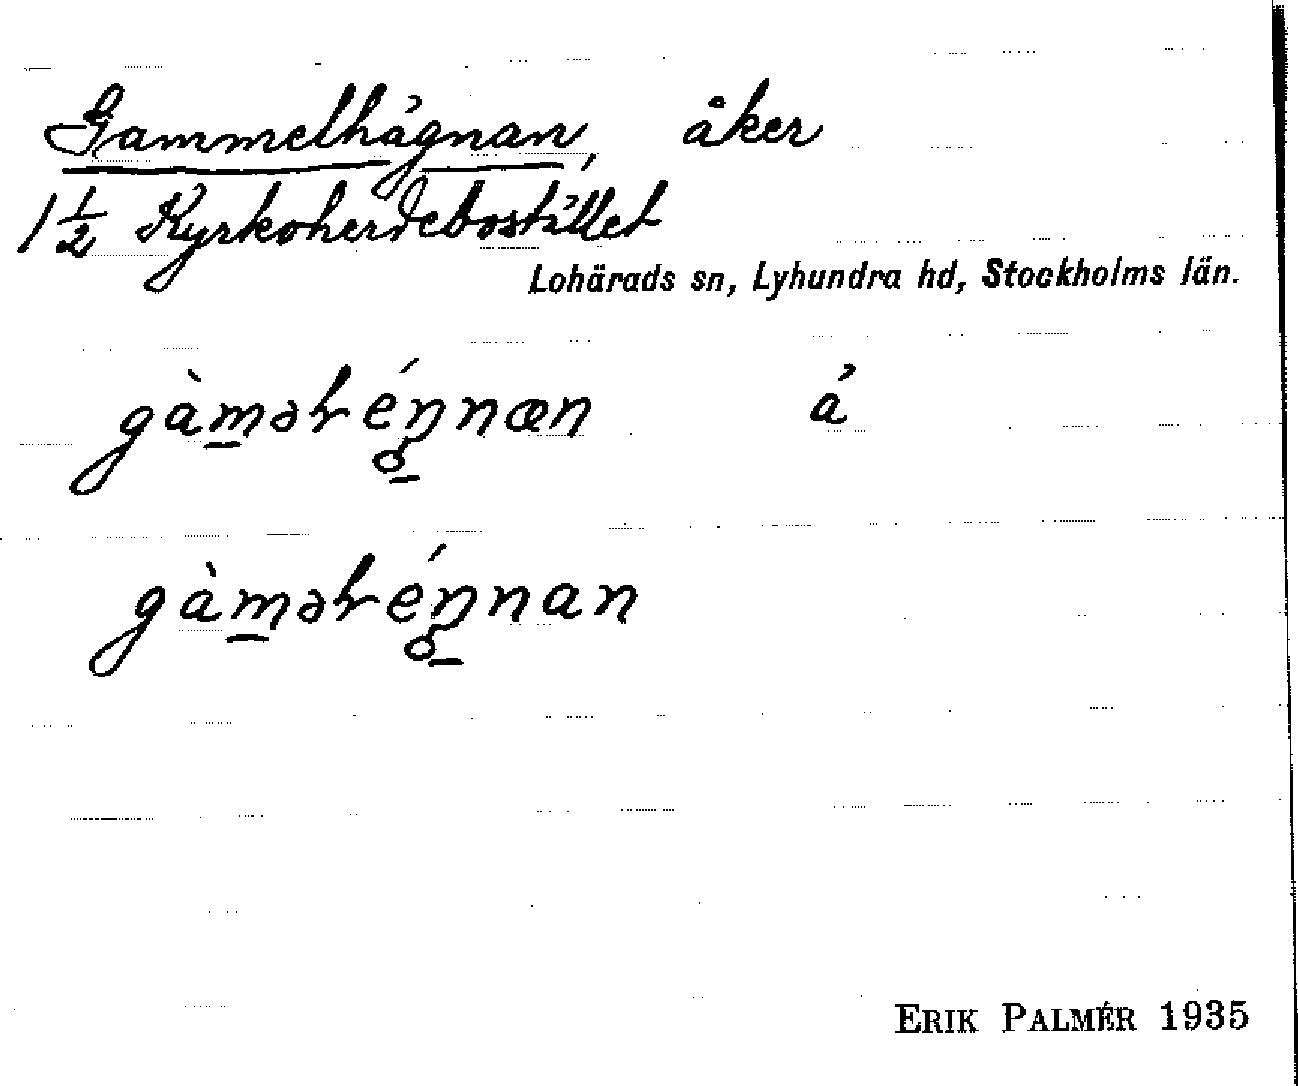 Gammelhägnan, åker
1 1/2 Kyrkoherdebostället
Lohärads sn, Lyhundra hd, Stockholms län.
gàm̲əɫéŋ̲næn á
gàm̲əɫéŋ̲nan
ERIK PALMÉR 1935